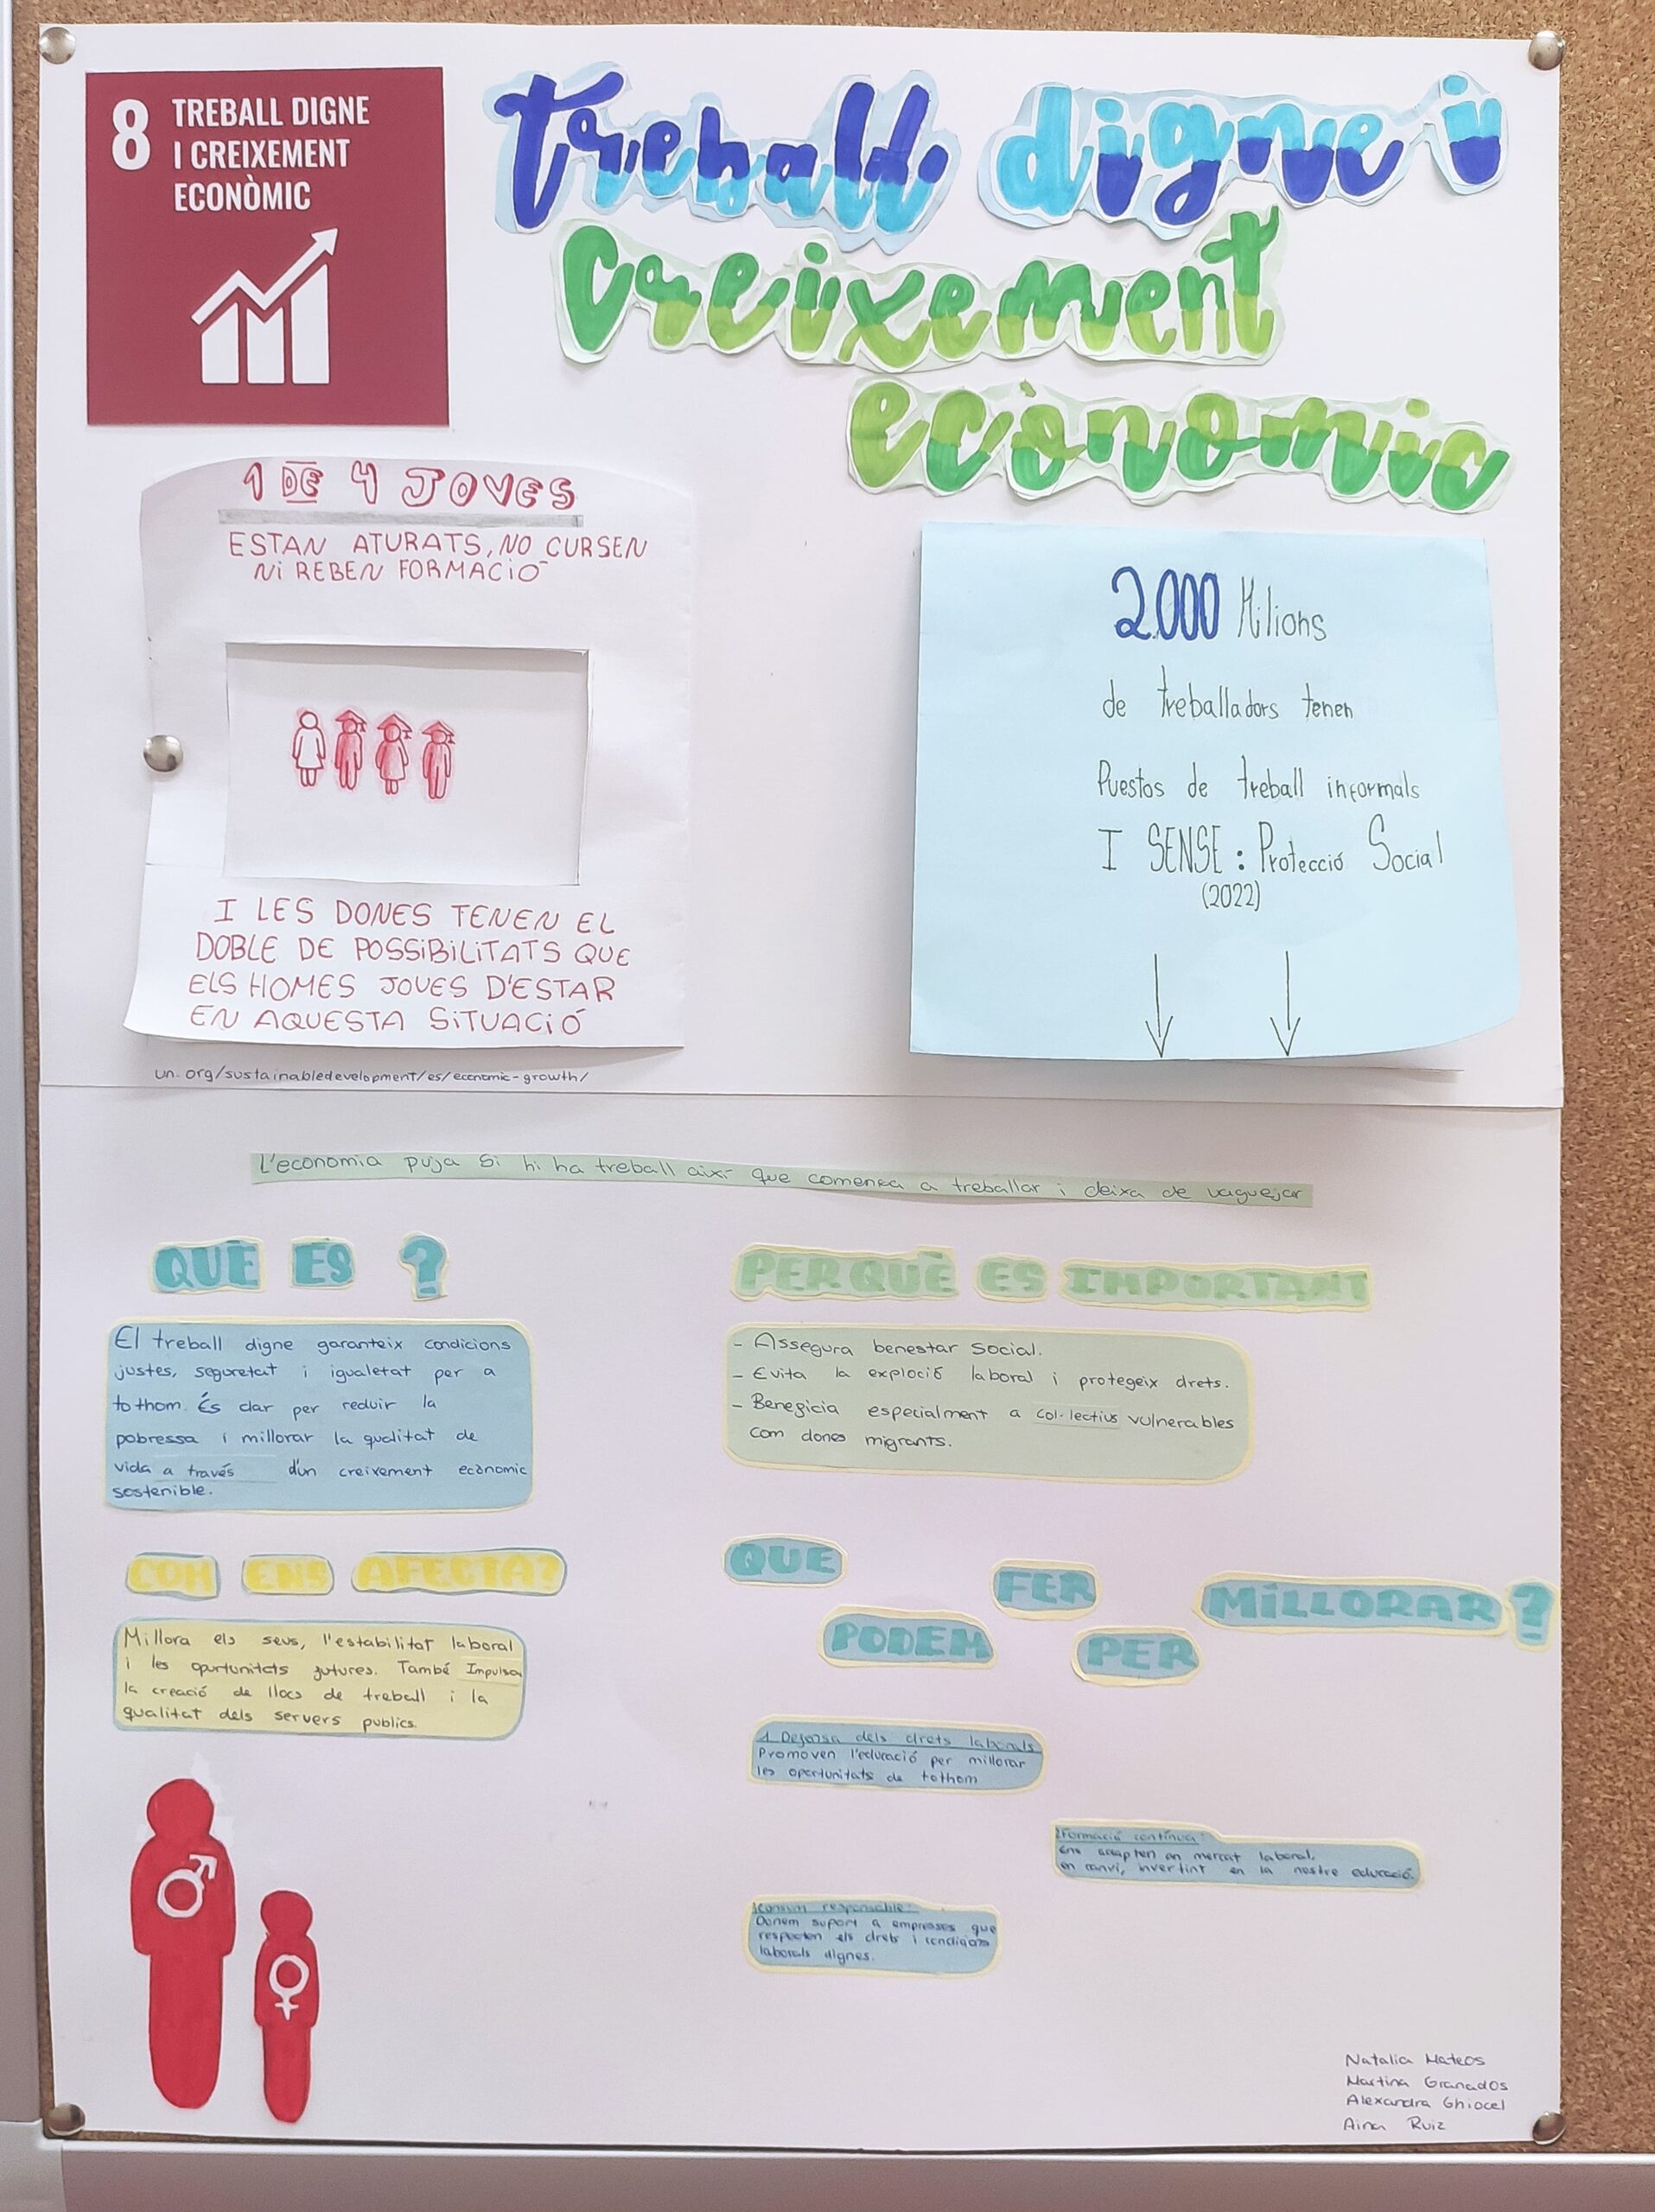 8 TREBALL DIGNE
I CREIXEMENT
ECONÒMIC
treball digne i
creixement
econòmic
1 DE 4 JOVES
ESTAN ATURATS, NO CURSEN
NI REBEN FORMACIÓ
I LES DONES TENEN EL
DOBLE DE POSSIBILITATS QUE
ELS HOMES JOVES D'ESTAR
EN AQUESTA SITUACIÓ
un.org/sustainabledevelopment/es/economic-growth/
2.000 Milions
de treballadors tenen
Puestos de treball informals
I SENSE: Protecció Social
(2022)
L'economia puja si hi ha treball així que comença a treballar i deixa de vaguejar
QUÈ ES ?
El treball digne garanteix condicions
justes, seguretat i igualetat per a
tothom. És clar per reduir la
pobressa i millorar la qualitat de
vida a través d'un creixement econòmic
sostenible.
PERQUÈ ES IMPORTANT
- Assegura benestar social.
- Evita la exploció laboral i protegeix drets.
- Benegicia especialment a col·lectius vulnerables
com dones migrants.
COM ENS AFECTA?
Millora els seus, l'estabilitat laboral
i les oportunitats futures. També Impulsa
la creació de llocs de treball i la
qualitat dels servers publics.
QUE PODEM FER PER MILLORAR ?
1. Defensa dels drets laborals
Promoven l'educació per millorar
les oportunitats de tothom
Formació contínua:
Ens adapten en mercat laboral,
en canvi, invertint en la nostre educació.
Consum responsable:
Donem suport a empresses que
respecten els drets i condicions
laborals dignes.
Natalia Mateos
Martina Granados
Alexandra Ghiocel
Aina Ruiz